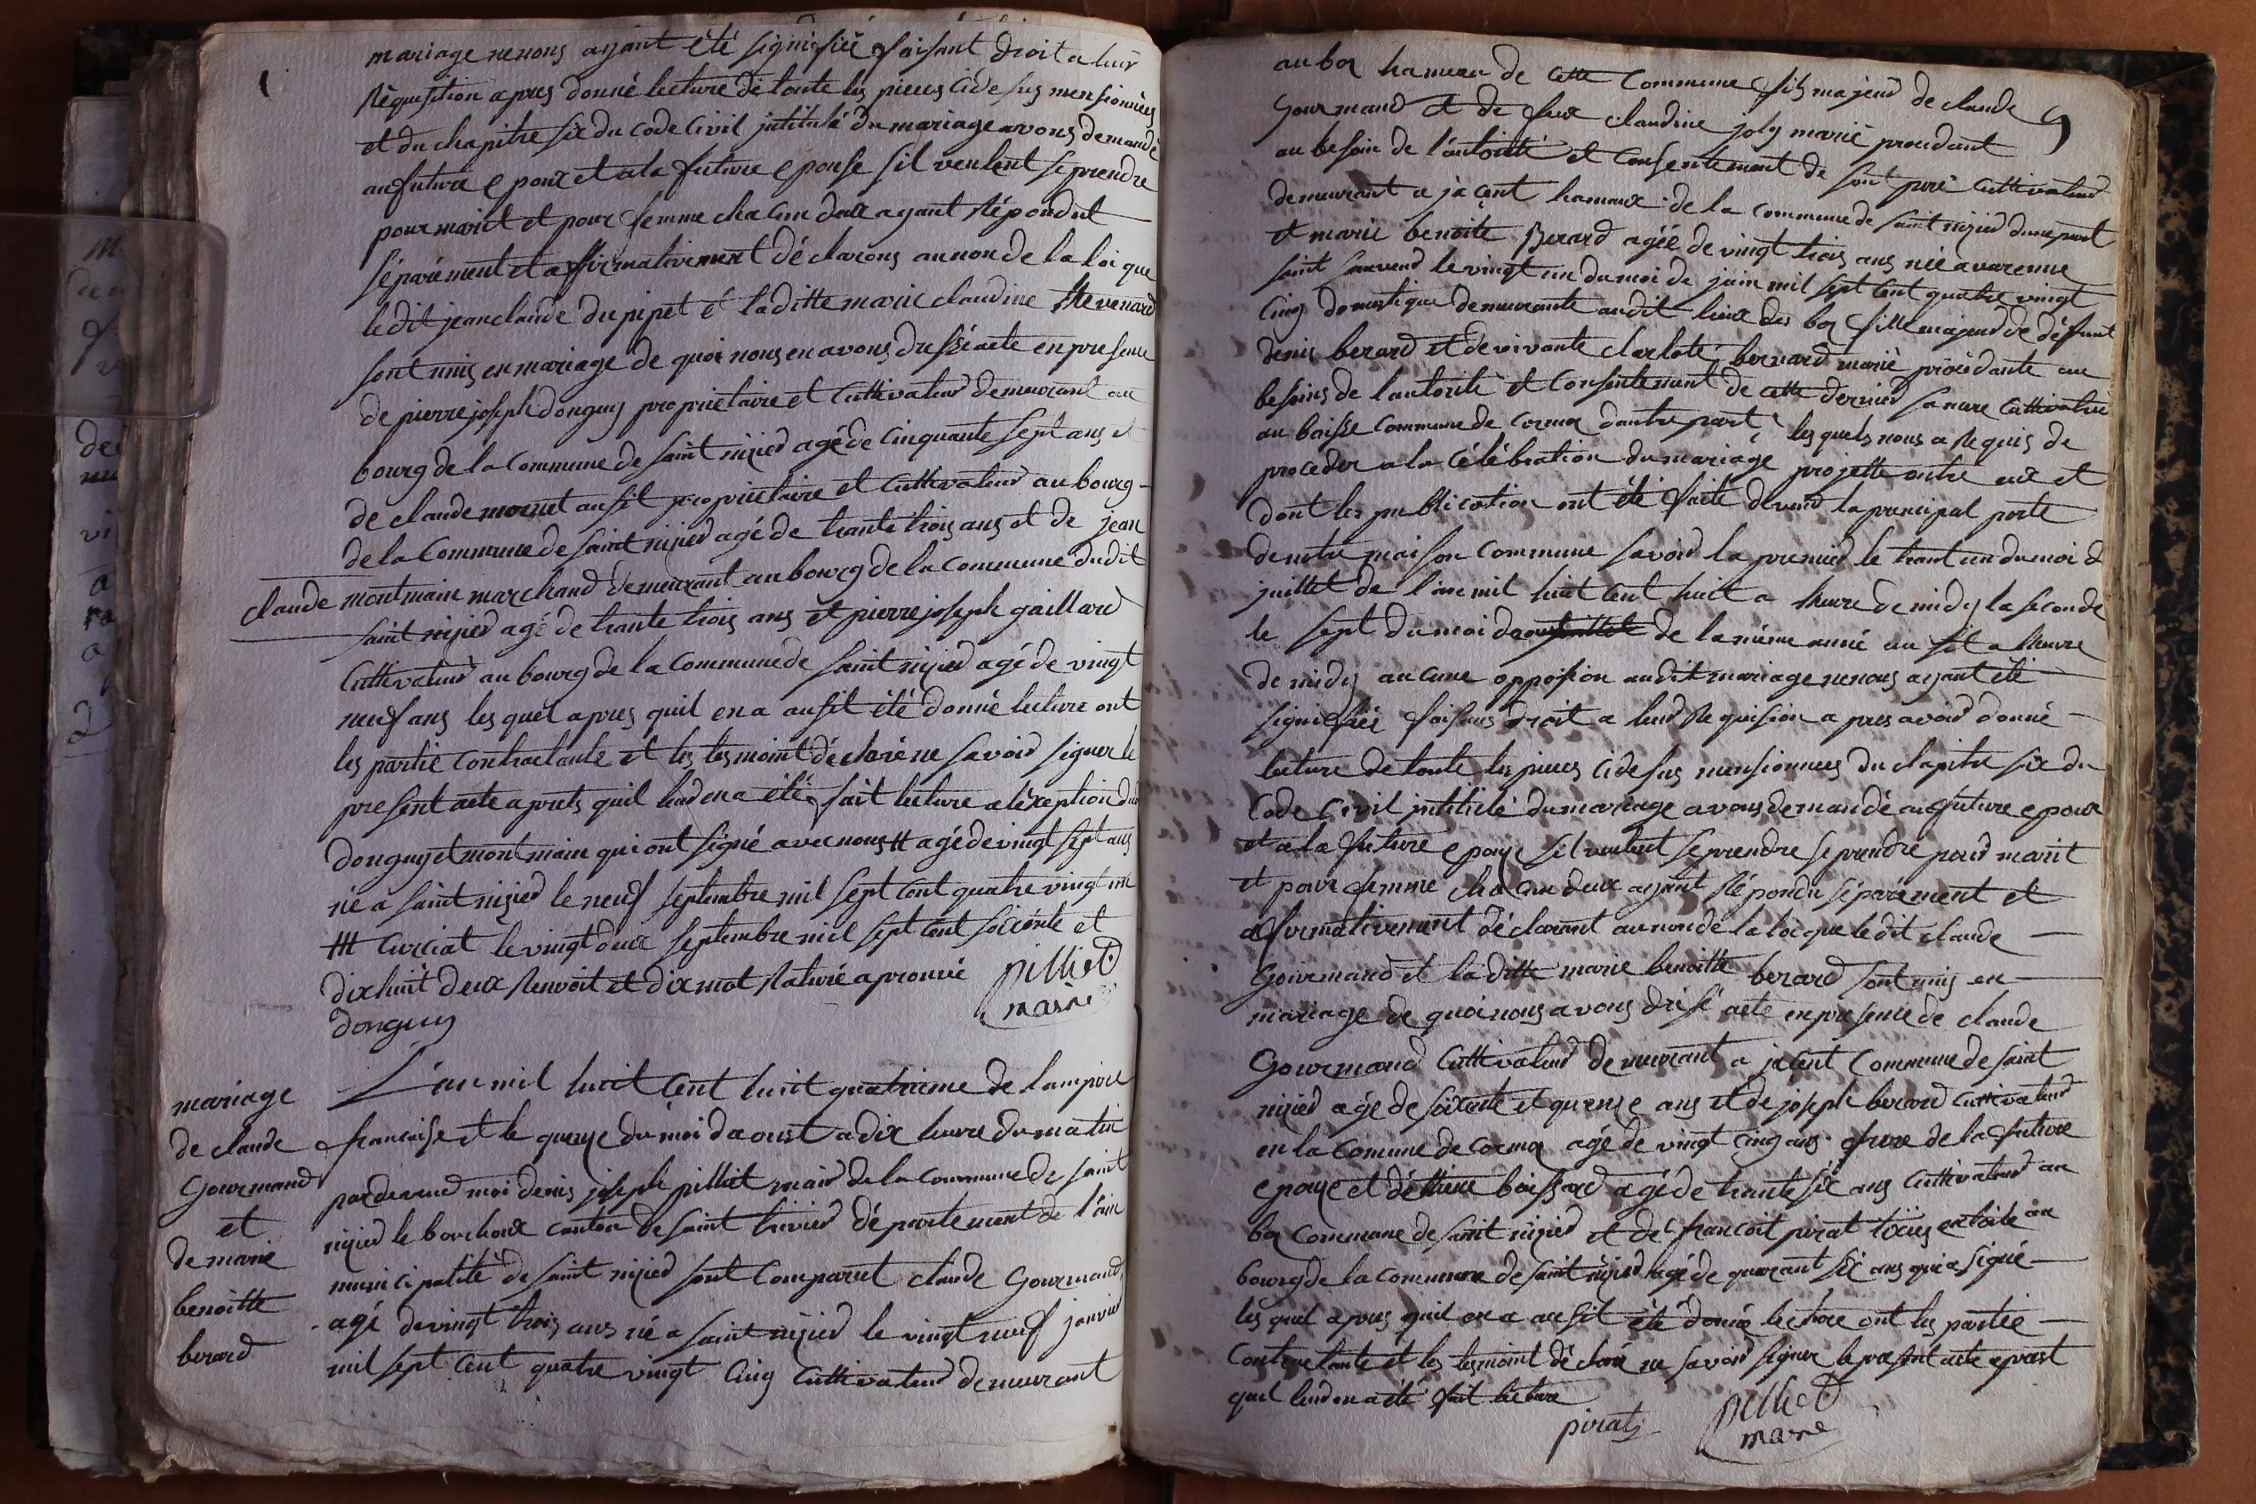 mariage nenons ayant été signifiié faisant droit a lurs
Requisition apres donné lecture de toute les pieces cidesus mensionnées
et du chapitre six du code Civil jntitulé du mariage avons demandé
au future epoux et a la future epouse sil veulent se prendre
pour marit et pour femme chacun deux ayant Répondut
séparement et affirmativement déclarons au non de la loi que
ledit jean claude dupipet et laditte marie claudine thevenard
sont unis en mariage de quoi nous en avons dressé acte en presence
de pierre joseph donguy propriétaire et Cultivateur demeurant au
bourg de la Commune de saint nizier agé de Cinquante sept ans et
de claude mornet ausit propriétaire et Cultivateur au bourg
de la Commune de saint nizier agé de trante trois ans et de jean
claude montmain marchand demeurant au bourg de la Commune dudit
saint nizier agé de trante trois ans et pierre joseph gaillard
Cultivateur au bourg de la Commune de saint nizier agé de vingt
neuf ans les quel apres quil en a ausit été donné lecture ont
les partie Contractante et les tesmoint déclaré ne savoir signer le
present acte aprets quil leur en a été fait lecture a léxeption du
donguy et montmain qui ont signé avec nous # agé de vingt sept ans
né a saint nizier le neuf septembre mil sept cent quatre vingt un
## Curciat le vingt deux septembre mil sept cent soicénte et
dix huit deux Renvoit et dix mot Raturé aprouvé pilliet
donguy maire
mariage
de claude
Gourmand
et
de marie
benoitte
berard
L'an mil huit Cent huit quatrieme de lampire
francaise et le quenze du moi daoust a dix heure du matin
pardevend moi denis joseph pilliet mair de la Commune de saint
nizier le bouchoux canton de saint trivier département de l'ain
municipalité de saint nizier sont Comparut claude Gourmand,
agé de vingt trois ans né a saint nizier le vingt neuf janvier
mil sept Cent quatre vingt Cinq Cultivateur demeurant
9
au boz hameau de cette Commune fils majeur de claude
Gourmand et de feux claudine joly marié procedant
au besoin de l'autorité et Consentement de sont pere Cultivateur
demeurant a jacent hameaux de la Commune de saint nizier dune part
et marie benoite Berard agée de vingt trois ans née a varenne
saint sauveur le vingt un du moi de juin mil sept Cent quatre vingt
Cinq domestique demeurante audit lieux des boz fille majeur de défeunt
denis berard et de vivante charlote bernard marié procédante au
besoins de l'autorité et Consentement de cette dernier sa mere Cultivatrice
au baisse Commune de cormoz dautre part, les quels nous a Requis de
proceder a la Célébration du mariage projetté entre eux et
dont les publication ont été faite devend la principal porte
de notre maison Commune savoir la premier le trant un du moi de
juillet de l'ane mil huit Cent huit a heure de midy la seconde
le sept du moi daoust de la même anné au sit a heure
de midy aucune opposion audit mariage nenous ayant été
signifiée faisans droit a leur Requision apres avoir donné
lecture de toute les pieces cidesus mensionnees du chapitre six du
Code Civil jntitulé du mariage avons demandé au future epoux
et a la future epouse sil veulent se prendre se prendre pour marit
et pour femme chacun deux ayant Répondu séparement et
afirmativement déclarant au non de la loi que ledit claude
Gourmand et la ditte marie benoitte berard sont unis en
mariage de quoi nous avons dréssé acte en presence de claude
Gourmand Cultivateur demeurant a jacent Commune de saint
nizier agé de soixante et quenze ans et de joseph berard Cultivateur
en la Comune de cormoz agé de vingt Cinq ans frere de la future
epouse et détienne boissard agé de trante six ans Cultivateur au
boz Commune de saint nizier et de francoit pirat au
bourg de la Commune de saint nizier agé de quarant six ans qui a signé
les quel apres quil en a ausit été donné lecture ont les partie
Contractante et les tesmoint déclaré ne savoir signer le present acte aprest
quil leur en a été fait lecture
pirat pilliet
maire